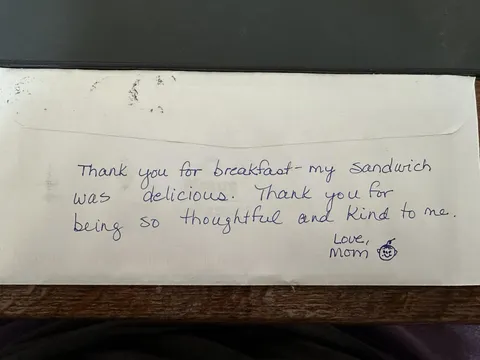 Thank you for breakfast - my sandwich
was delicious. Thank you for
being so thoughtful and kind to me.
Love,
Mom